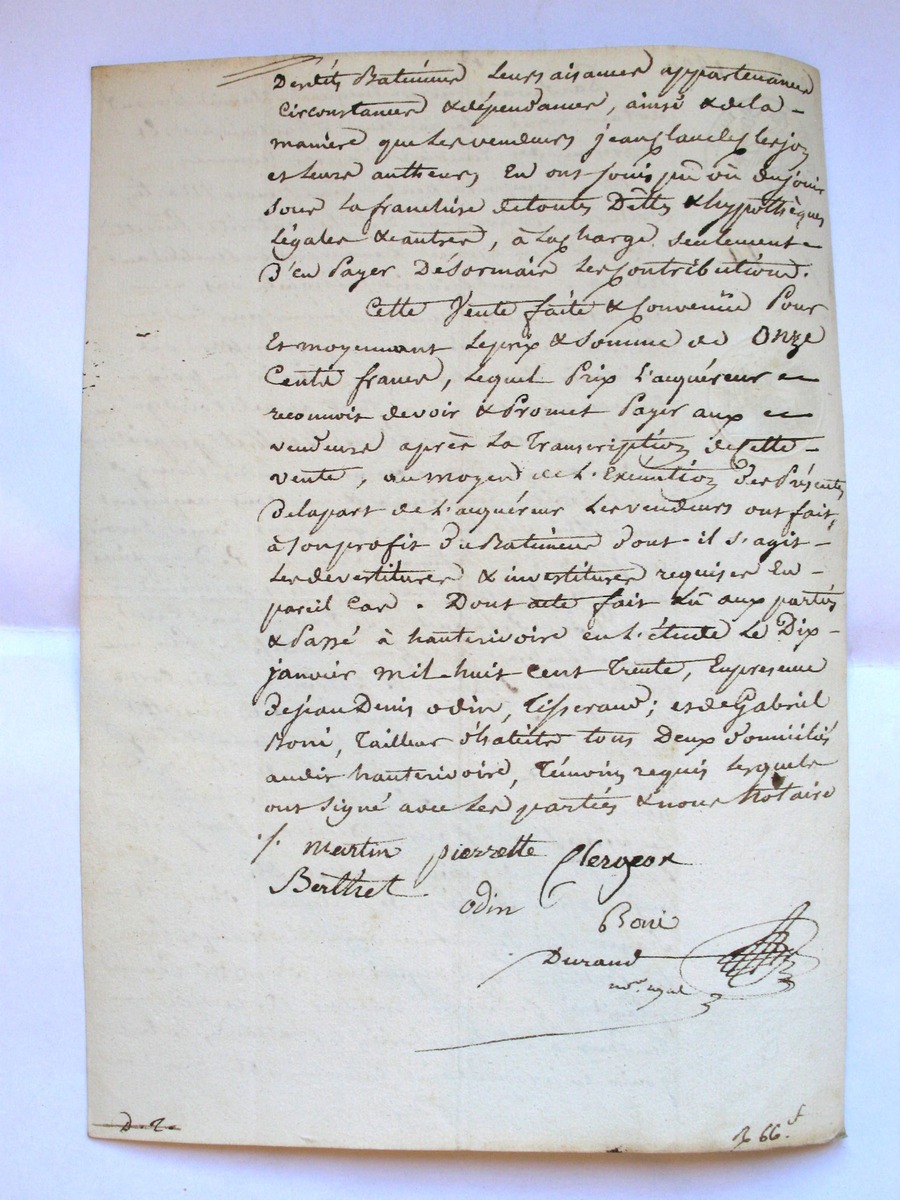 Desdits Batimens leurs aisances appartenances
circonstances & dépendances, ainsi & de la
maniere que les vendeurs jean Claude Clerjon
et leurs autheurs En ont joui pû où du jouir
sous la franchise de toutes Dêttes & hypothèques
Légales & autres, à la charge seulement
D'en Payer Désormais les Contributions.
Cette Vente faite & convenüe Pour
Et moyennant le prix & Somme de Onze
Cents francs, lequel Prix l'acquéreur
reconnoit devoir & Promet Payer aux
vendeurs après la Transcription de Cette
vente, au moyen de l'Exécution des Présentes
De la part de l'acquéreur les vendeurs ont fait
à son profit Du Batiment dont il s'agit
les devestitures & investitures requises En
pareil Cas. Dont acte fait Lû aux parties
& Passé à hauterivoire en l'étude Le Dix
janvier mil huit cent Trente, En presence
De jean Denis odin, Tisserand; et de Gabriel
Boni, Tailleur d'habits tous Deux domiciliés
audit hauterivoire, Témoins requis lesquels
ont signé avec les parties & nous Notaire
martin pierrette Clergeon
Berthet
odin
Boni
Durand
not. royal
D. 2
66.